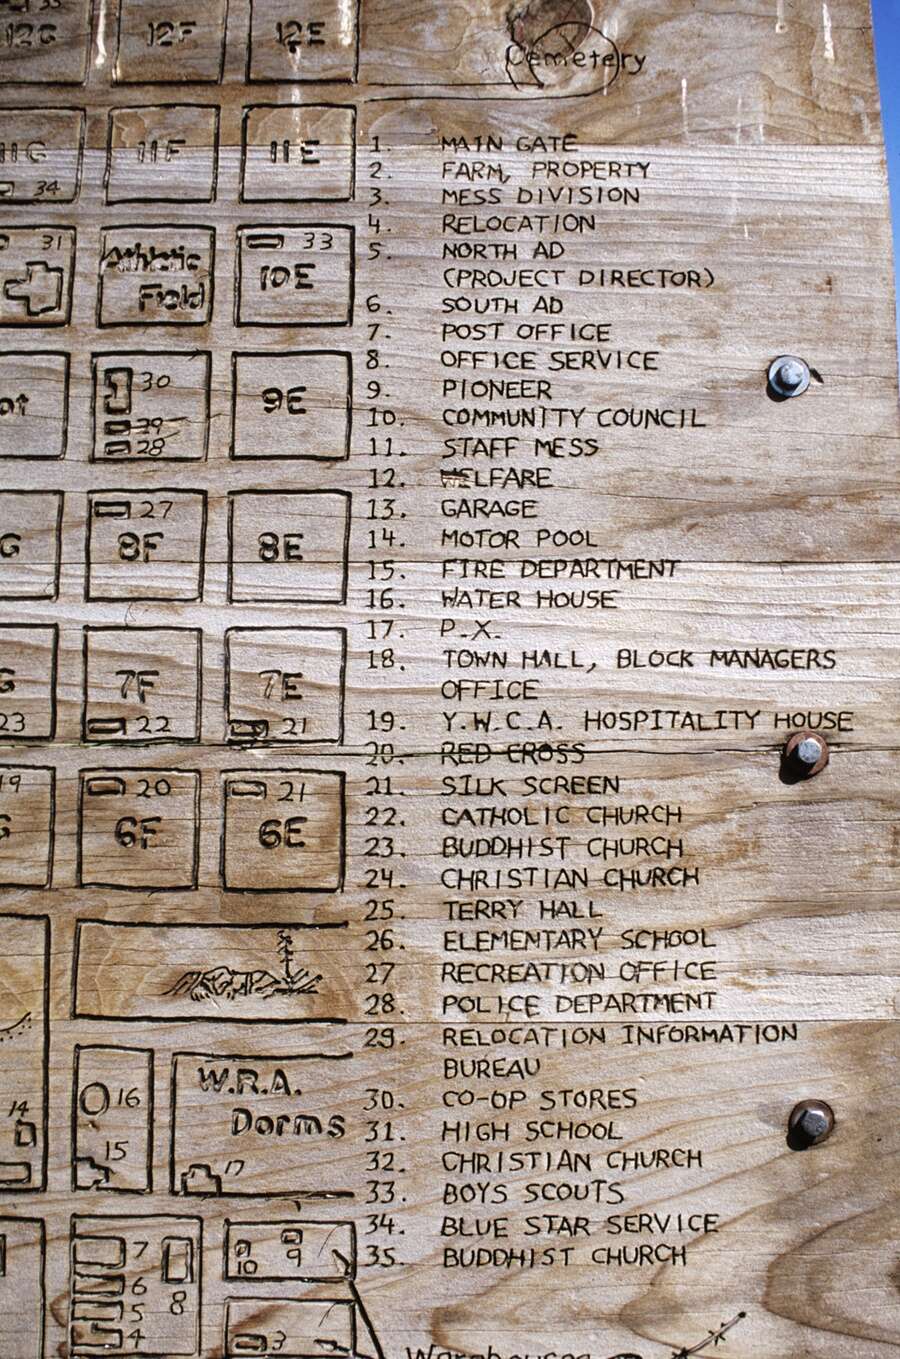 35
12G 12F 12E Cemetery
11G 11F 11E
34
1. MAIN GATE
2. FARM, PROPERTY
3. MESS DIVISION
4. RELOCATION
5. NORTH AD
(PROJECT DIRECTOR)
6. SOUTH AD
7. POST OFFICE
8. OFFICE SERVICE
9. PIONEER
10. COMMUNITY COUNCIL
11. STAFF MESS
12. WELFARE
13. GARAGE
14. MOTOR POOL
15. FIRE DEPARTMENT
16. WATER HOUSE
17. P.X.
18. TOWN HALL, BLOCK MANAGERS
OFFICE
19. Y.W.C.A. HOSPITALITY HOUSE
20. RED CROSS
21. SILK SCREEN
22. CATHOLIC CHURCH
23. BUDDHIST CHURCH
24. CHRISTIAN CHURCH
25. TERRY HALL
26. ELEMENTARY SCHOOL
27 RECREATION OFFICE
28. POLICE DEPARTMENT
29. RELOCATION INFORMATION
BUREAU
30. CO-OP STORES
31. HIGH SCHOOL
32. CHRISTIAN CHURCH
33. BOYS SCOUTS
34. BLUE STAR SERVICE
35. BUDDHIST CHURCH
31
Athletic
Field
33
10E
30
29
28
9E
27
8F
8E
7F
22
7E
21
23
19
20
6F
21
6E
14
16
15
W.R.A.
Dorms
17
7
6
5
4
8
10
9
3
Warehouses